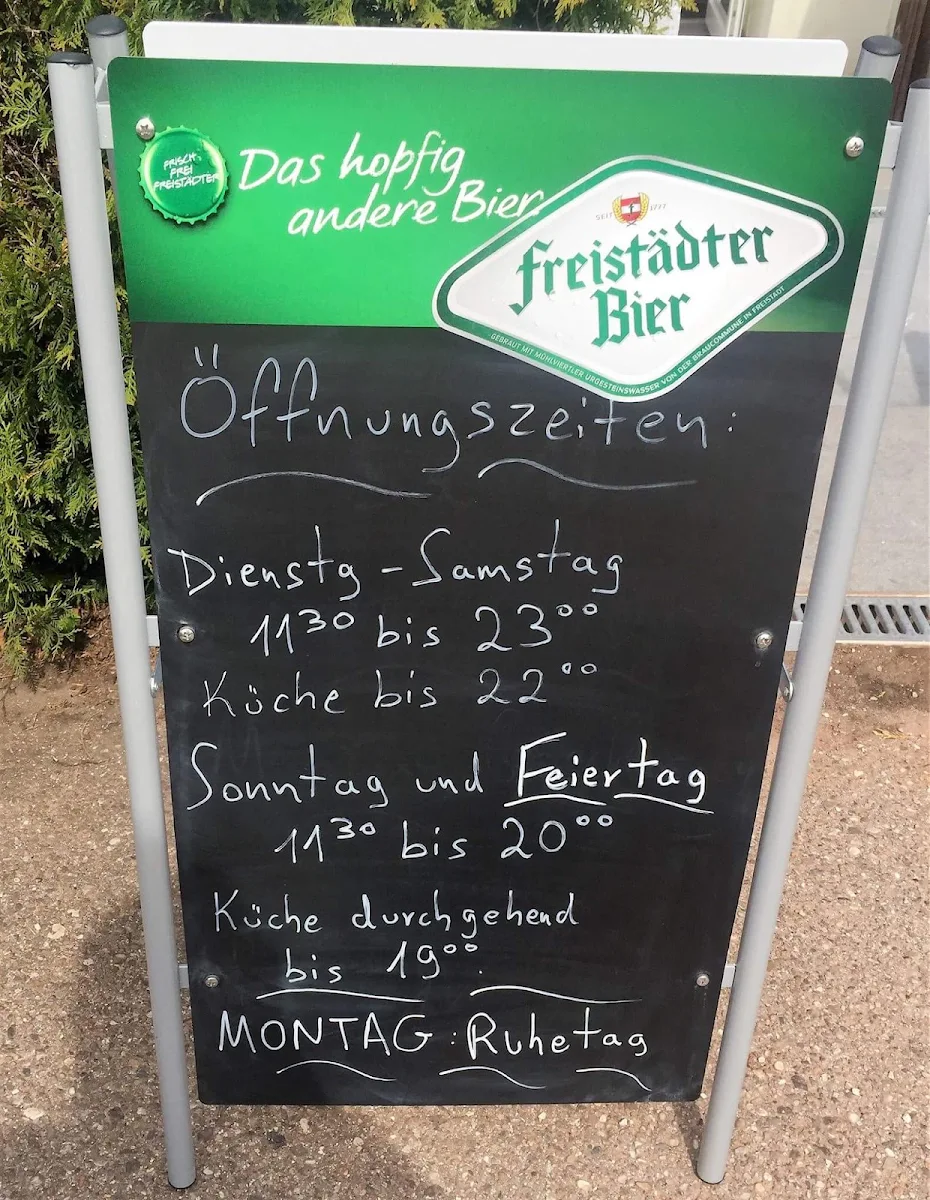 FRISCH,
FREI
FREISTÄDTER
Das hopfig
andere Bier.
SEIT 1777
freistädter
Bier
GEBRAUT MIT MÜHLVIERTLER URGESTEINSWASSER VON DER BRAUCOMMUNE IN FREISTADT
Öffnungszeiten:
Dienstg - Samstag
11³⁰ bis 23⁰⁰
Küche bis 22⁰⁰
Sonntag und Feiertag
11³⁰ bis 20⁰⁰
Küche durchgehend
bis 19⁰⁰.
MONTAG: Ruhetag